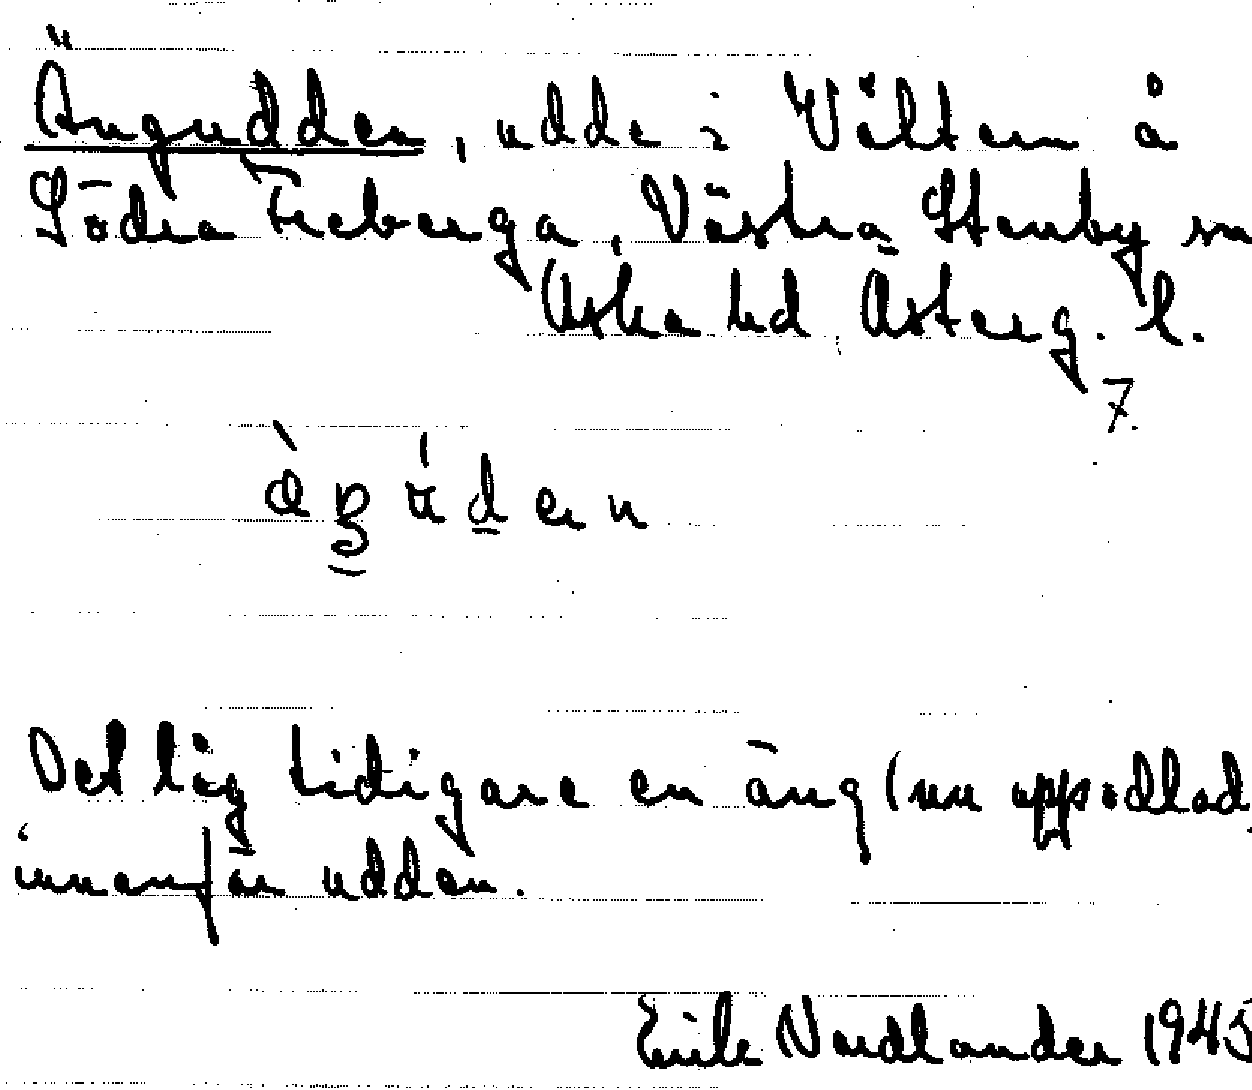 Ängudden, udde i Vältern å
Södra Freberga, Västra Stenby sn
Aska hd Österg. l.
7.
Det låg tidigare en äng (nu uppodlad
innanför udden.
Erik Nordlander 1945